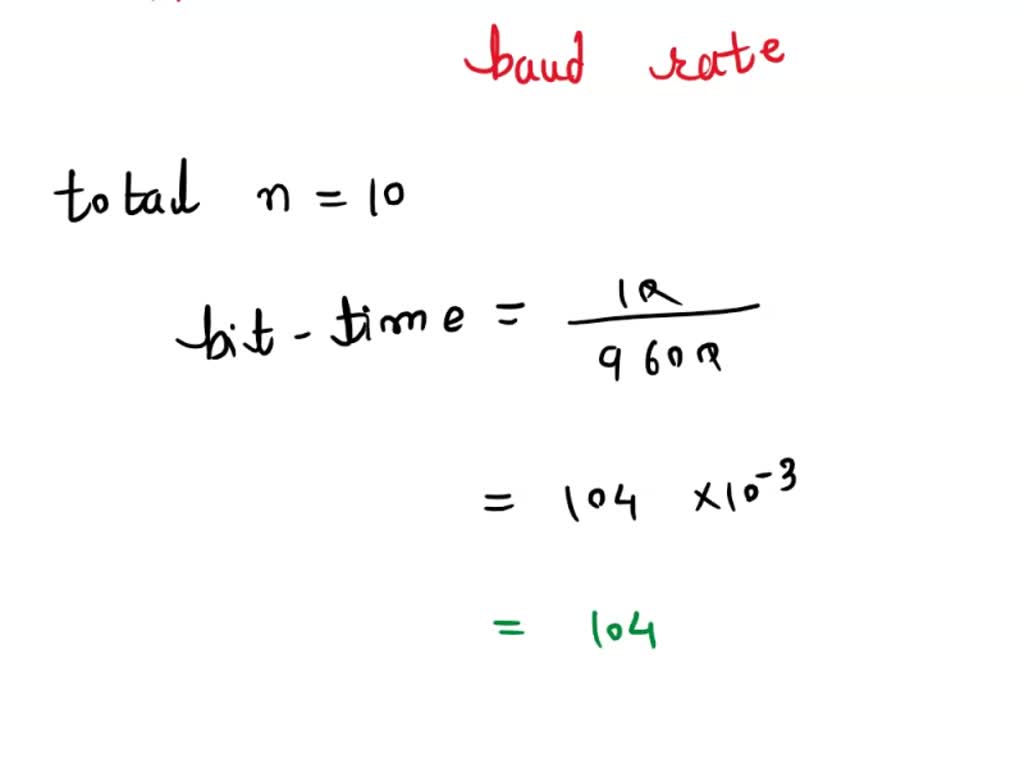 baud rate
total n = 10
bit - time = 10
9600
= 104 ×10⁻³
= 104